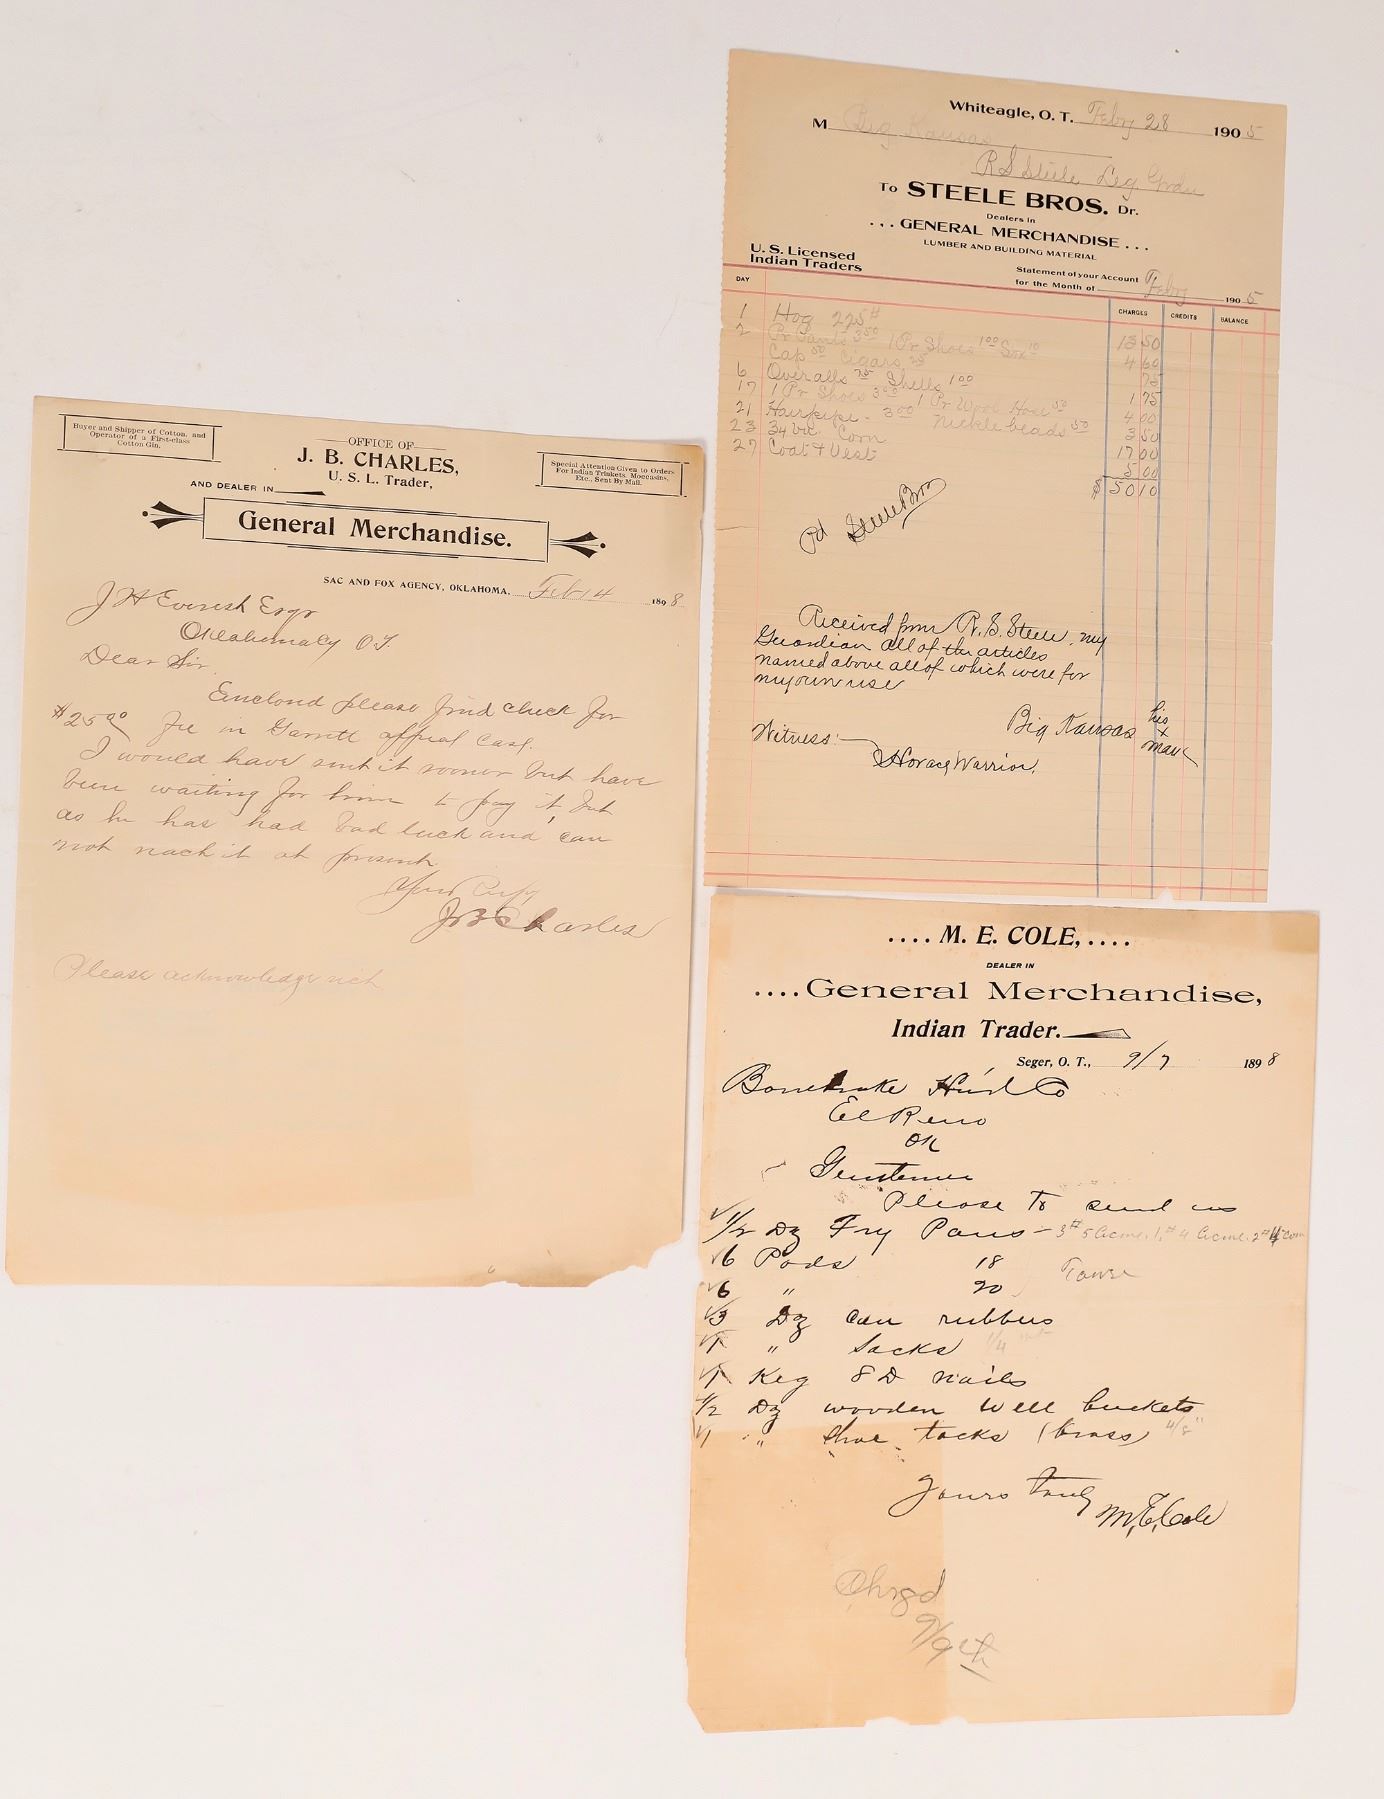 Buyer and Shipper of Cotton, and
Operator of a First-class
Cotton Gin.
OFFICE OF
J. B. CHARLES,
U. S. L. Trader,
Special Attention Given to Orders
For Indian Trinkets, Moccasins,
Etc., Sent By Mail.
AND DEALER IN
General Merchandise.
SAC AND FOX AGENCY, OKLAHOMA, Feb 14 1898
J H Everest Esqr
Oklahoma Cy O.T.
Dear Sir
Enclosed please find check for
$25.00 fee in Garrett appeal case.
I would have sent it sooner but have
been waiting for him to pay it, but
as he has had bad luck and can
not reach it at present
Yours
J B Charles
Please acknowledge
Whiteagle, O. T. Feby 28 1905
M Big Kansas
R S Steele Leg Grdn
To STEELE BROS. Dr.
Dealers in
... GENERAL MERCHANDISE ...
LUMBER AND BUILDING MATERIAL
U. S. Licensed
Indian Traders
Statement of your Account
for the Month of Feby 1905
DAY CHARGES CREDITS BALANCE
1 Hog 225# 13 50
2 Pr Pants 2.50 1 Pr Shoes 1.00 Sox 10
Cap 50 Cigars 25 4 60
6 Overalls 75 Shells 1.00 75
17 1 Pr Shoes 3.00 1 Pr Wool Hose 50 1 75
21 Hairpipe - 3.00 Nickle beads 50 4 00
23 34 bu. Corn 3 50
27 Coat & Vest 17 00
5 00
$ 50 10
Pd Steele Bros
Received from R. S. Steele, my
Guardian all of the articles
named above all of which were for
my own use
Big Kansas his
x
mark
Witness:
Horace Warrior.
.... M. E. COLE, ....
DEALER IN
.... General Merchandise,
Indian Trader.
Seger, O. T., 9/7 1898
Bonebrake Hrd Co
El Reno
OK
Gentlemen
Please to send us
1/2 Dz Fry Pans - 3 # 5 Acme. 1 # 4 Acme. 2 # 4 Com
6 Pads 18
6 " 20
3 Dz can rubbers
1 " Sacks 1/4
1 Keg 8 D nails
1/2 Dz wooden well buckets
1 " Shoe tacks (brass) 4/8"
Yours Truly
M. E. Cole
Chrgd
9/9th